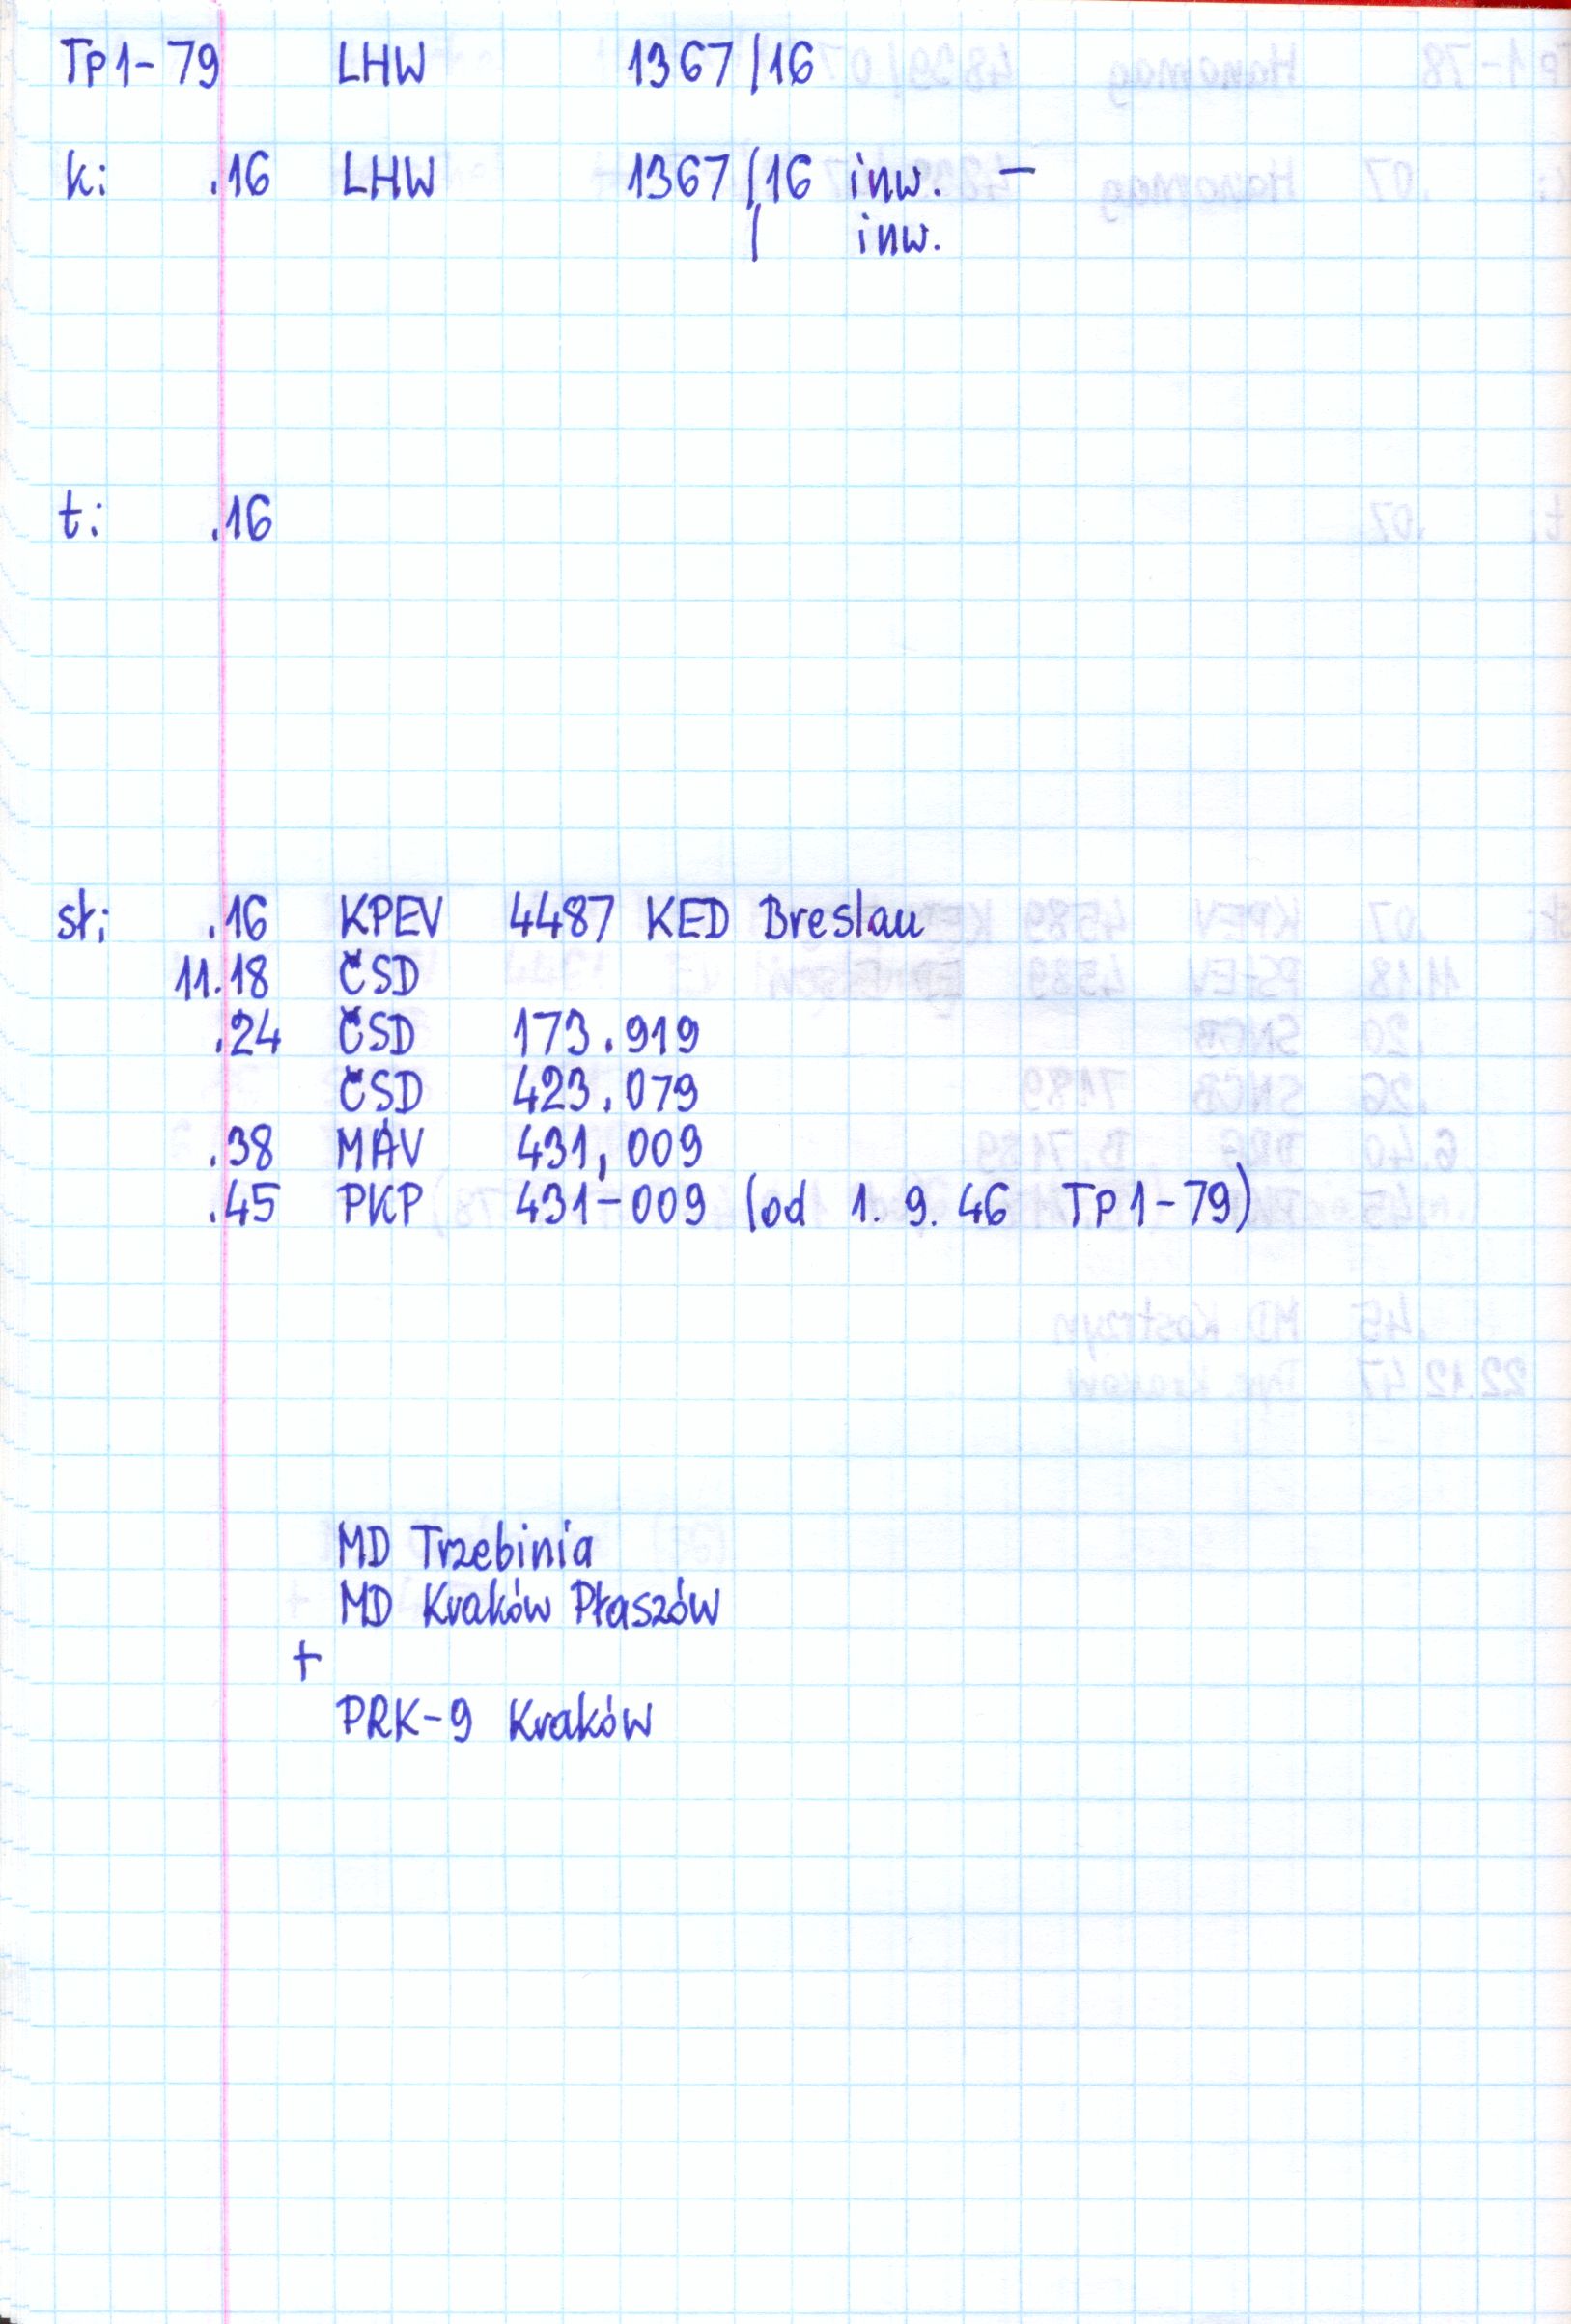 Tp1-79 LHW 1367/16
k: .16 LHW 1367/16 inw. -
/ inw.
t: .16
st: .16 KPEV 4487 KED Breslau
11.18 ČSD
.24 ČSD 173.919
ČSD 423.079
.38 MÁV 431,009
.45 PKP 431-009 (od 1. 9. 46 Tp1-79)
MD Trzebinia
MD Kraków Płaszów
+
PRK-9 Kraków